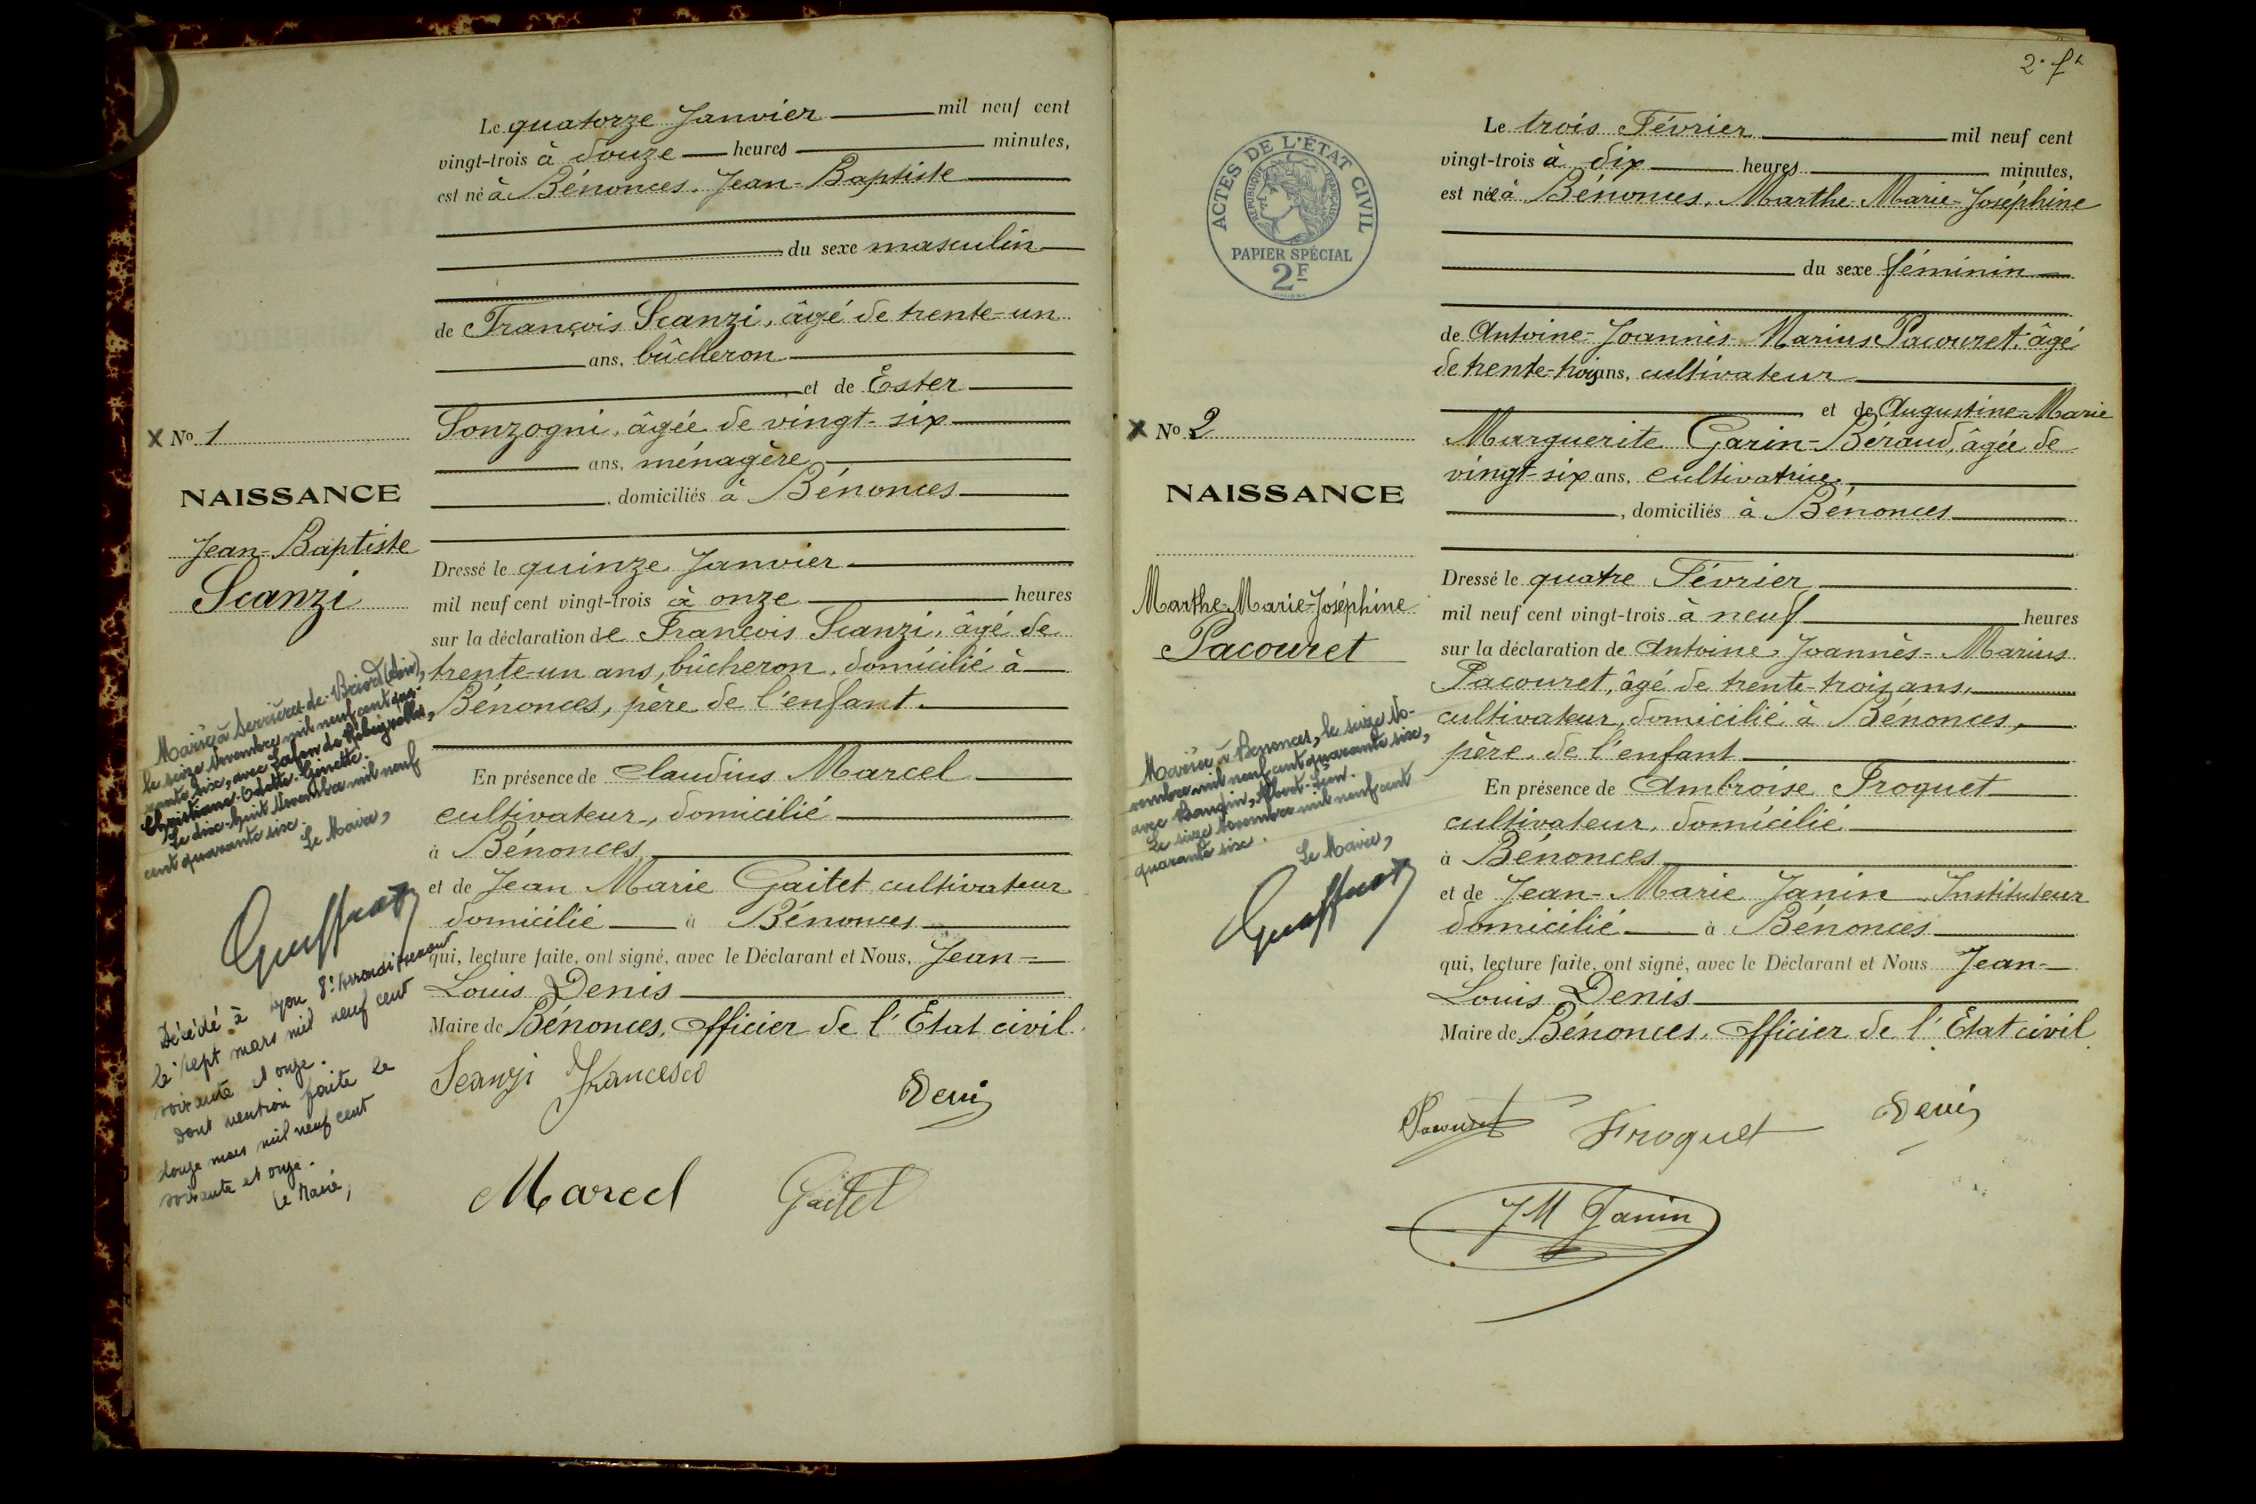 Le quatorze Janvier mil neuf cent
vingt-trois à douze heures minutes,
est né à Bénonces, Jean-Baptiste
du sexe masculin
de François Scanzi, âgé de trente-un
ans, bûcheron
, et de Ester
Sonzogni, âgée de vingt-six
ans, ménagère
, domiciliés à Bénonces
Dressé le quinze Janvier
mil neuf cent vingt-trois à onze heures
sur la déclaration de François Scanzi, âgé de
trente-un ans, bûcheron, domicilié à
Bénonces, père de l'enfant.
En présence de Claudius Marcel
cultivateur, domicilié
à Bénonces
et de Jean Marie Gaitet cultivateur
domicilié à Bénonces
qui, lecture faite, ont signé, avec le Déclarant et Nous, Jean-
Louis Denis
Maire de Bénonces, Officier de l'Etat civil.
Scanzi Francesco
Denis
Marcel Gaitet
X No 1
NAISSANCE
Jean-Baptiste
Scanzi
Marié à Serrières-de-Briord (Ain),
le seize Novembre mil neuf cent qua-
rante six, avec Lafon de
Christiane-Odette-Ginette.
Le dix-huit Novembre mil neuf
cent quarante six.
Le Maire,
Décédé à Lyon 8e Arrondissement
le sept mars mil neuf cent
soixante et onze.
Dont mention faite le
douze mars mil neuf cent
soixante et onze.
Le Maire,
2e ft
ACTES DE L'ÉTAT CIVIL
RÉPUBLIQUE FRANÇAISE
PAPIER SPÉCIAL
2F
Le trois Février mil neuf cent
vingt-trois à dix heures minutes,
est née à Bénonces, Marthe Marie-Joséphine
du sexe féminin
de Antoine-Joannès-Marius Pacouret, âgé
de trente-trois ans, cultivateur
et de Augustine-Marie
Marguerite Garin-Béraud, âgée de
vingt-six ans, cultivatrice
, domiciliés à Bénonces
Dressé le quatre Février
mil neuf cent vingt-trois à neuf heures
sur la déclaration de Antoine-Joannès-Marius
Pacouret, âgé de trente-trois ans,
cultivateur, domicilié à Bénonces,
père de l'enfant
En présence de Ambroise Froquet
cultivateur, domicilié
à Bénonces
et de Jean-Marie Janin Instituteur
domicilié à Bénonces
qui, lecture faite, ont signé, avec le Déclarant et Nous Jean-
Louis Denis
Maire de Bénonces, Officier de l'Etat civil
Pacouret Froquet Denis
JM Janin
X No 2
NAISSANCE
Marthe-Marie-Joséphine
Pacouret
Mariée à Bénonces, le seize No-
vembre mil neuf cent quarante six,
avec Albert
Le seize Novembre mil neuf cent
quarante six.
Le Maire,